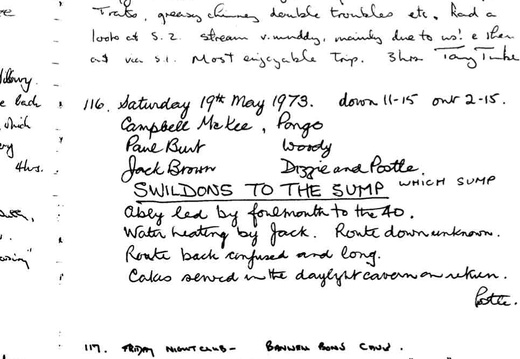 Trats, greasy chimney double troubles etc. Had a
look at S.2. Stream v. muddy, mainly due to us! & then
out via S.1. Most enjoyable Trip. 3hrs
back
which
4hrs.
116. Saturday 19th May 1973. down 11-15 out 2-15.
Campbell McKee, Pongo
Paul Burt Woody
Jack Brown Dizzie and Pootle.
SWILDONS TO THE SUMP WHICH SUMP
Ably led by to the 40.
Water heating by Jack. Route down unknown.
Route back confused and long.
Cakes served in the daylight cavern on return.
Pootle.
117. FRIDAY NIGHT CLUB - BANWELL BONE CAVE.